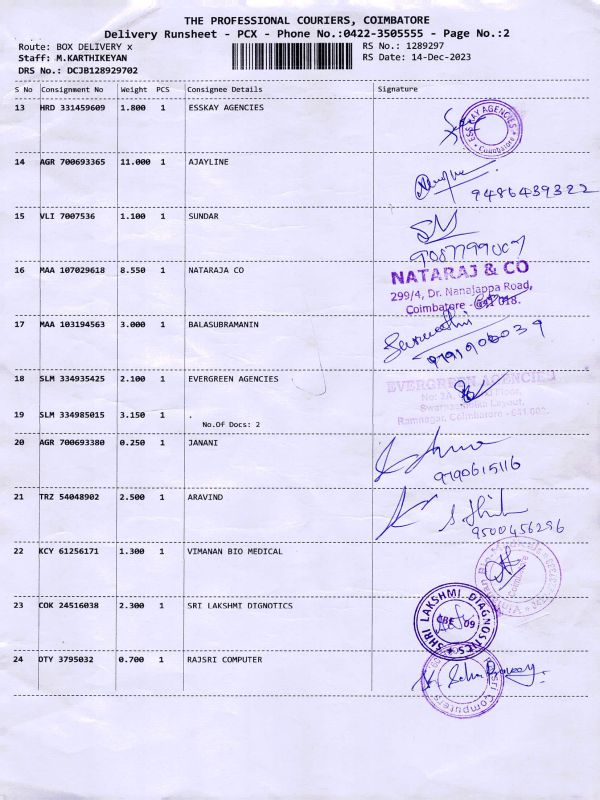 THE PROFESSIONAL COURIERS, COIMBATORE
Delivery Runsheet - PCX - Phone No.:0422-3505555 - Page No.:2
Route: BOX DELIVERY x
RS No.: 1289297
Staff: M.KARTHIKEYAN
RS Date: 14-Dec-2023
DRS No.: DCJB128929702
S No Consignment No Weight PCS Consignee Details Signature
13 HRD 331459609 1.800 1 ESSKAY AGENCIES
ESSKAY AGENCIES
Coimbatore
14 AGR 700693365 11.000 1 AJAYLINE
9486439322
15 VLI 7007536 1.100 1 SUNDAR
9087799007
16 MAA 107029618 8.550 1 NATARAJA CO
NATARAJ & CO
299/4, Dr. Nanajappa Road,
Coimbatore - 641 018.
17 MAA 103194563 3.000 1 BALASUBRAMANIN
9791906039
18 SLM 334935425 2.100 1 EVERGREEN AGENCIES
EVERGREEN AGENCIES
Ramnagar, Coimbatore - 641 009.
19 SLM 334985015 3.150 1 .
No.Of Docs: 2
20 AGR 700693380 0.250 1 JANANI
9790615116
21 TRZ 54048902 2.500 1 ARAVIND
9500456296
22 KCY 61256171 1.300 1 VIMANAN BIO MEDICAL
23 COK 24516038 2.300 1 SRI LAKSHMI DIGNOTICS
SHRI LAKSHMI DIAGNOSTICS
CBE 09
24 DTY 3795032 0.700 1 RAJSRI COMPUTER